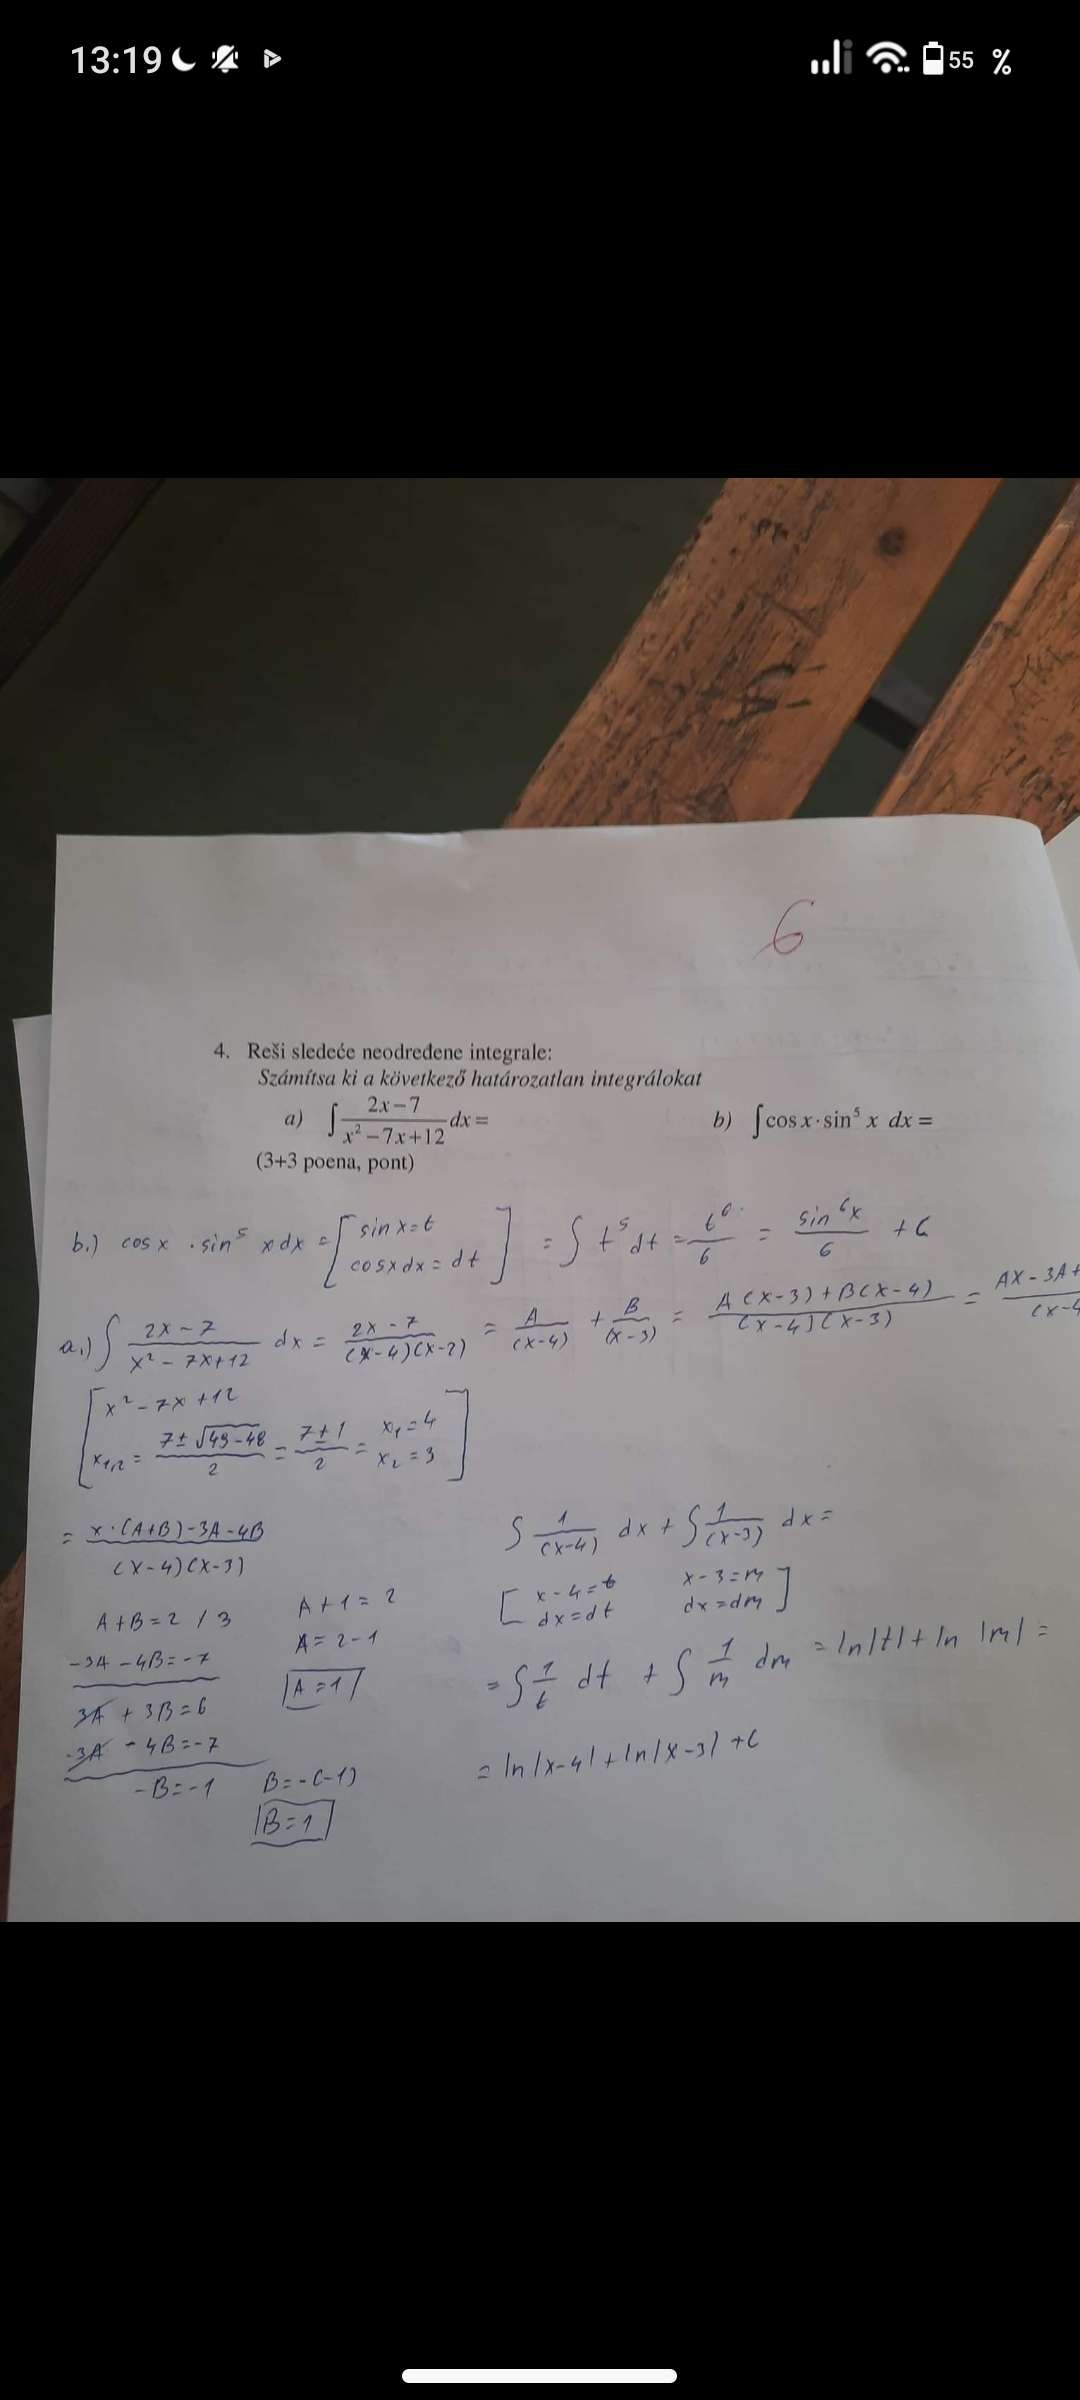 13:19 55 %
6
4. Reši sledeće neodređene integrale:
Számítsa ki a következő határozatlan integrálokat
a) ∫ (2x−7)/(x²−7x+12) dx = b) ∫cos x·sin⁵ x dx =
(3+3 poena, pont)
b.) cosx · sin⁵ x dx = [sin x = t
cosx dx = dt] = ∫ t⁵ dt = t⁶/6 = sin⁶x/6 + C
a.) ∫ (2x-7)/(x² - 7x+12) dx = (2x-7)/((x-4)(x-2)) = A/(x-4) + B/(x-3) = (A(x-3)+B(x-4))/((x-4)(x-3)) = (AX - 3A+)/((x-4
[x² - 7x +12
x₁,₂ = (7±√49-48)/2 = (7±1)/2 = x₁=4
x₂=3]
= (x·(A+B)-3A-4B)/((x-4)(x-3))
A+B=2 / 3
-3A-4B=-7
3A + 3B=6
-3A - 4B=-7
-B=-1 B=-(-1)
B=1
A+1=2
A=2-1
A=1
∫ 1/(x-4) dx + ∫ 1/(x-3) dx =
[x-4=t x-3=m
dx=dt dx=dm]
= ∫ 1/t dt + ∫ 1/m dm = ln|t| + ln |m| =
= ln|x-4| + ln|x-3| + C